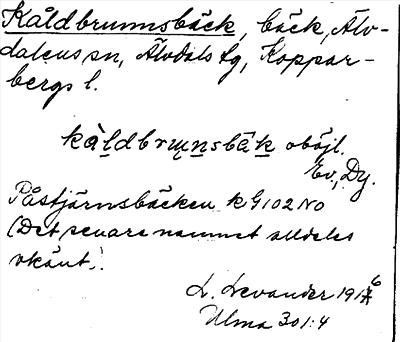 Kåldbrunnsbäck, bäck, Älv-
dalens sn, Älvdals tg, Koppar-
bergs l.
kåldbrunsbäk oböjl.
Ev, Dy.
Påstjärnsbäcken k G 102 NO
(Det senare namnet alldeles
okänt.)
L. Levander 1916
Ulma 301:4